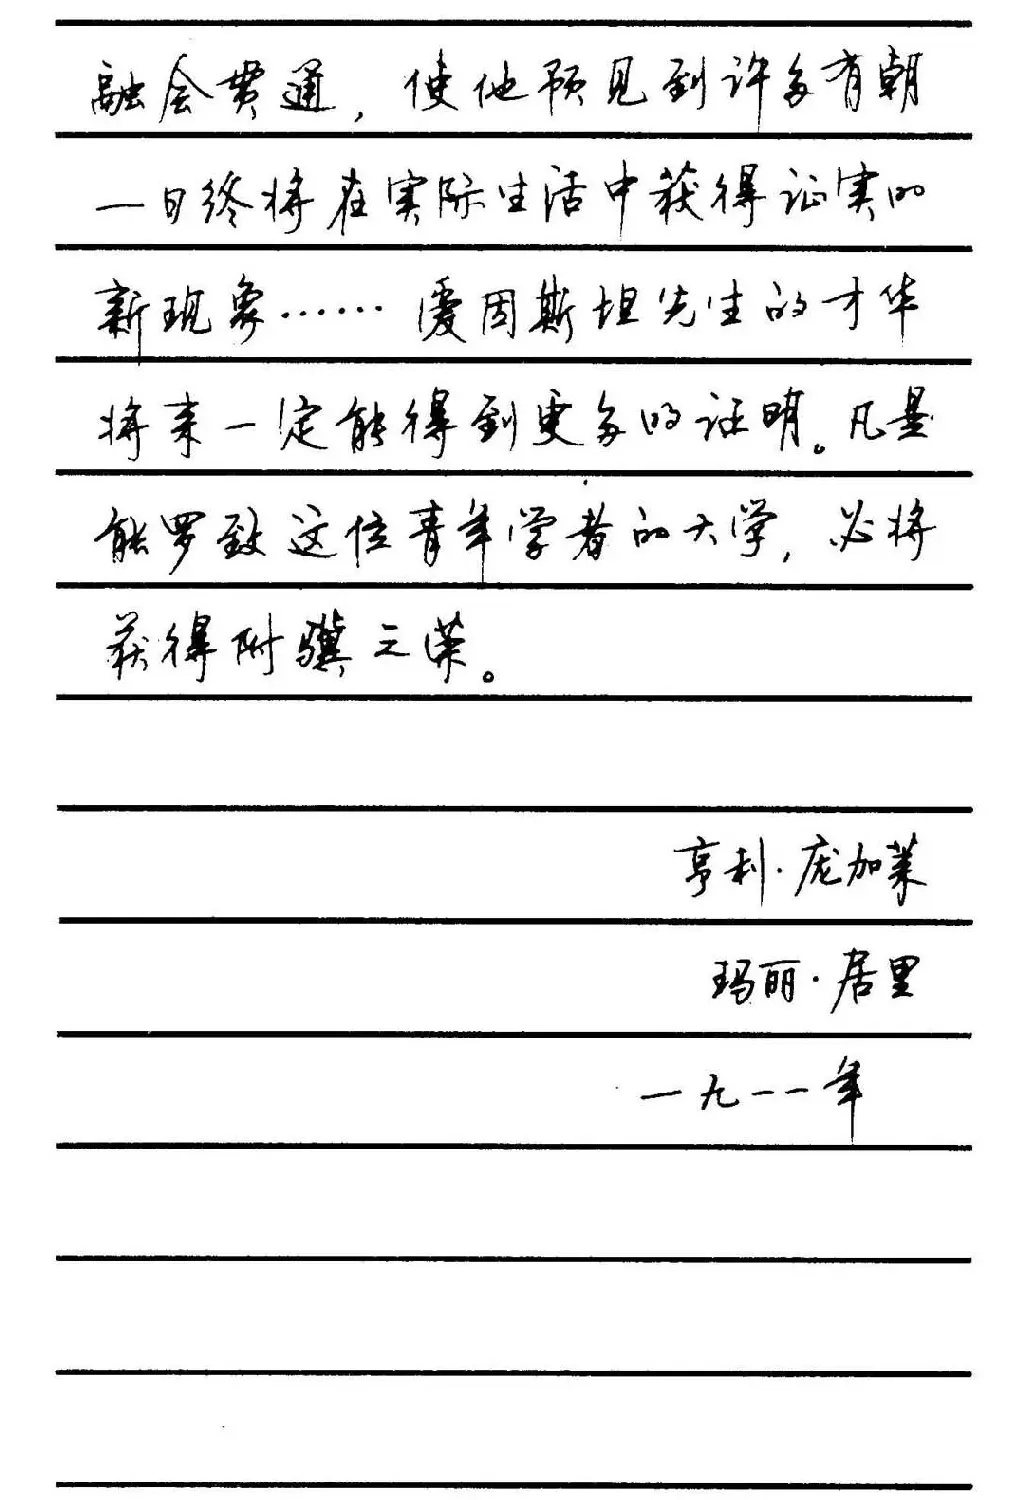 融会贯通，使他预见到许多有朝
一日终将在实际生活中获得证实的
新现象……爱因斯坦先生的才华
将来一定能得到更多的证明。凡是
能罗致这位青年学者的大学，必将
获得附骥之荣。
亨利·庞加莱
玛丽·居里
一九一一年